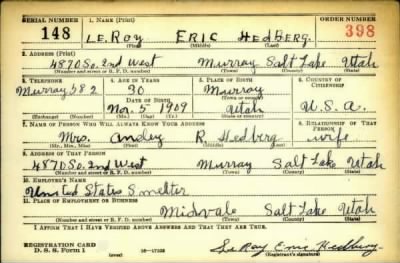 SERIAL NUMBER 1. NAME (Print) ORDER NUMBER
148 LeRoy ERIC HedBerg. 398
(First) (Middle) (Last)
2. ADDRESS (Print)
4870 So. 2nd West Murray Salt Lake Utah
(Number and street or R. F. D. number) (Town) (County) (State)
3. TELEPHONE 4. AGE IN YEARS 5. PLACE OF BIRTH 6. COUNTRY OF CITIZENSHIP
Murray 582 30 Murray
DATE OF BIRTH (Town or county)
Nov. 5 1909 Utah U.S.A.
(Exchange) (Number) (Mo.) (Day) (Yr.) (State or country)
7. NAME OF PERSON WHO WILL ALWAYS KNOW YOUR ADDRESS 8. RELATIONSHIP OF THAT PERSON
Mrs. R. Hedberg wife
(Mr., Mrs., Miss) (First) (Middle) (Last)
9. ADDRESS OF THAT PERSON
4870 So. 2nd West Murray Salt Lake Utah
(Number and street or R. F. D. number) (Town) (County) (State)
10. EMPLOYER'S NAME
United States Smelter
11. PLACE OF EMPLOYMENT OR BUSINESS
Midvale Salt Lake Utah
(Number and street or R. F. D. number) (Town) (County) (State)
I AFFIRM THAT I HAVE VERIFIED ABOVE ANSWERS AND THAT THEY ARE TRUE.
REGISTRATION CARD
D. S. S. Form 1 (over) 16-17105 LeRoy Eric Hedberg
(Registrant's signature)